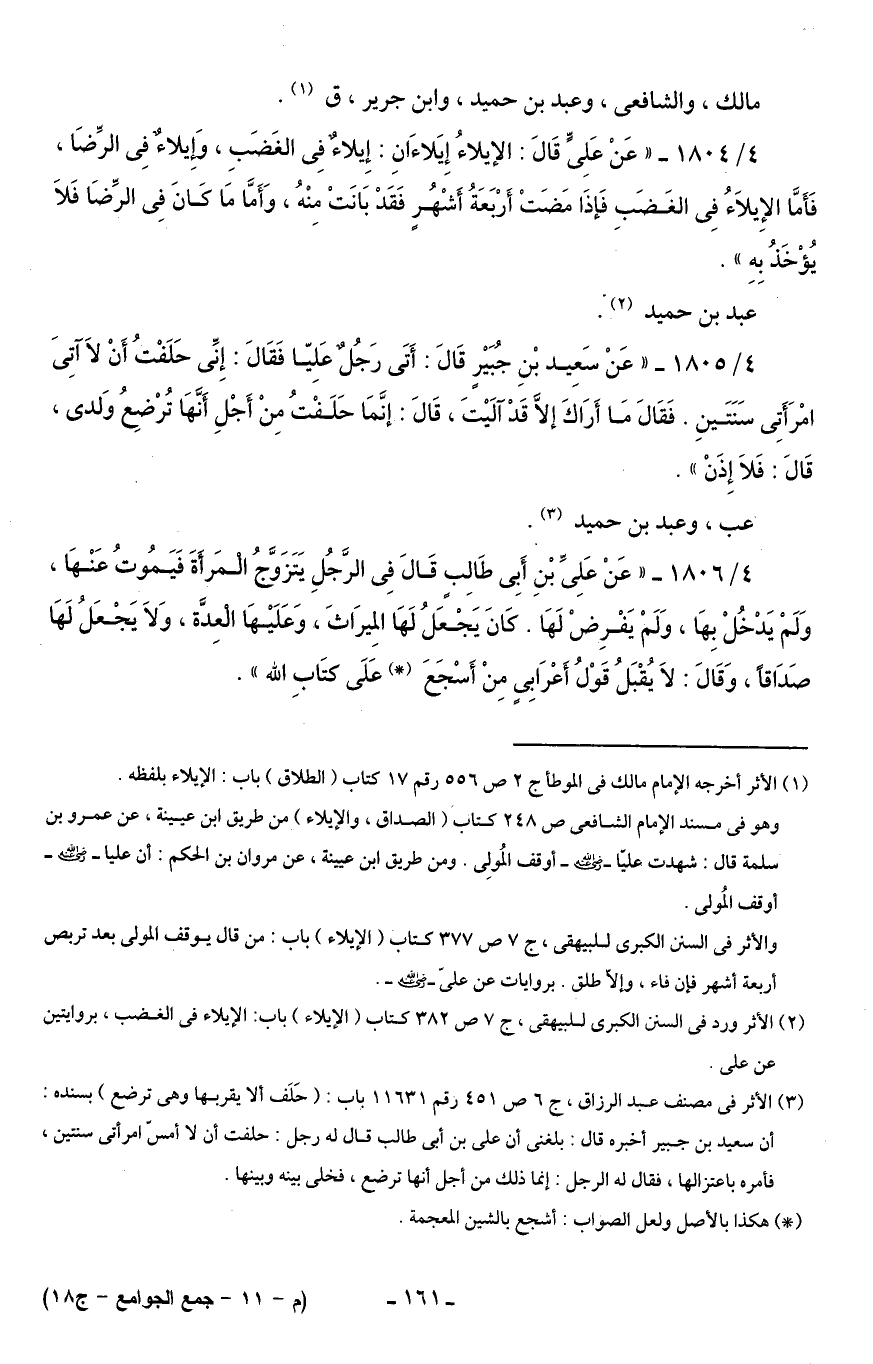 مالك ، والشافعى ، وعبد بن حميد ، وابن جرير ، ق (١) .
٤/ ١٨٠٤ ـ « عَنْ عَلىٍّ قَالَ : الإيلاءُ إيلاَءَانِ : إيلاءٌ فِى الغَضَبِ ، وَإيلاءٌ فِى الرِّضَا ،
فَأمَّا الإيلاَءُ فِى الغَضَبِ فَإذَا مَضَتْ أرْبَعَةُ أشْهُرٍ فَقَدْ بَانَتْ مِنْهُ ، وَأمَّا مَا كَانَ فِى الرِّضَا فَلاَ
يُؤْخَذُ بِهِ » .
عبد بن حميد (٢) .
٤/ ١٨٠٥ ـ « عَنْ سَعِيدِ بْنِ جُبَيْرٍ قَالَ : أَتَى رَجُلٌ عَلِيّا فَقَالَ : إنِّى حَلَفْتُ أنْ لاَ آتِىَ
امْرَأتِى سَنَتَيْنِ . فَقَالَ مَا أرَاكَ إلاَّ قَدْ آلَيْتَ ، قَالَ : إنَّمَا حَلَفْتُ مِنْ أجْلِ أنَّهَا تُرْضِعُ وَلَدى ،
قَالَ : فَلاَ إذَنْ » .
عب ، وعبد بن حميد (٣) .
٤/ ١٨٠٦ ـ « عَنْ عَلىِّ بْنِ أبِى طَالِبٍ قَالَ فِى الرَّجُلِ يَتَزَوَّجُ الْمَرأَةَ فَيَمُوتُ عَنْهَا ،
وَلَمْ يَدْخُلْ بِهَا ، وَلَمْ يَفْرِضْ لَهَا . كَانَ يَجْعَلُ لَهَا المِيرَاثَ ، وَعَلَيْهَا الْعِدَّة ، وَلاَ يَجْعَلُ لَهَا
صَدَاقاً ، وَقَالَ : لاَ يُقْبَلُ قَوْلُ أعْرَابِي مِنْ أَسْجَعَ (*) عَلَى كتَابِ الله » .
(١) الأثر أخرجه الإمام مالك فى الموطأ ج ٢ ص ٥٥٦ رقم ١٧ كتاب ( الطلاق ) باب : الإيلاء بلفظه .
وهو فى مسند الإمام الشافعى ص ٢٤٨ كتاب ( الصداق ، والإيلاء ) من طريق ابن عيينة ، عن عمرو بن
سلمة قال : شهدت عليّا ـ رضي الله عنه ـ أوقف المُولى . ومن طريق ابن عيينة ، عن مروان بن الحكم : أن عليا ـ رضي الله عنه ـ
أوقف المُولى .
والأثر فى السنن الكبرى للبيهقى ، ج ٧ ص ٣٧٧ كتاب ( الإيلاء ) باب : من قال يوقف المولى بعد تربص
أربعة أشهر فإن فاء ، وإلاّ طلق . بروايات عن علىّ ـ رضي الله عنه ـ .
(٢) الأثر ورد فى السنن الكبرى للبيهقى ، ج ٧ ص ٣٨٢ كتاب ( الإيلاء ) باب: الإيلاء فى الغضب ، بروايتين
عن على .
(٣) الأثر فى مصنف عبد الرزاق ، ج ٦ ص ٤٥١ رقم ١١٦٣١ باب : ( حَلَف ألا يقربها وهى ترضع ) بسنده :
أن سعيد بن جبير أخبره قال : بلغنى أن على بن أبى طالب قال له رجل : حلفت أن لا أمسّ امرأتى سنتين ،
فأمره باعتزالها ، فقال له الرجل : إنما ذلك من أجل أنها ترضع ، فخلى بينه وبينها .
(*) هكذا بالأصل ولعل الصواب : أشجع بالشين المعجمة .
ـ ١٦١ ـ (م - ١١ - جمع الجوامع - ج١٨)